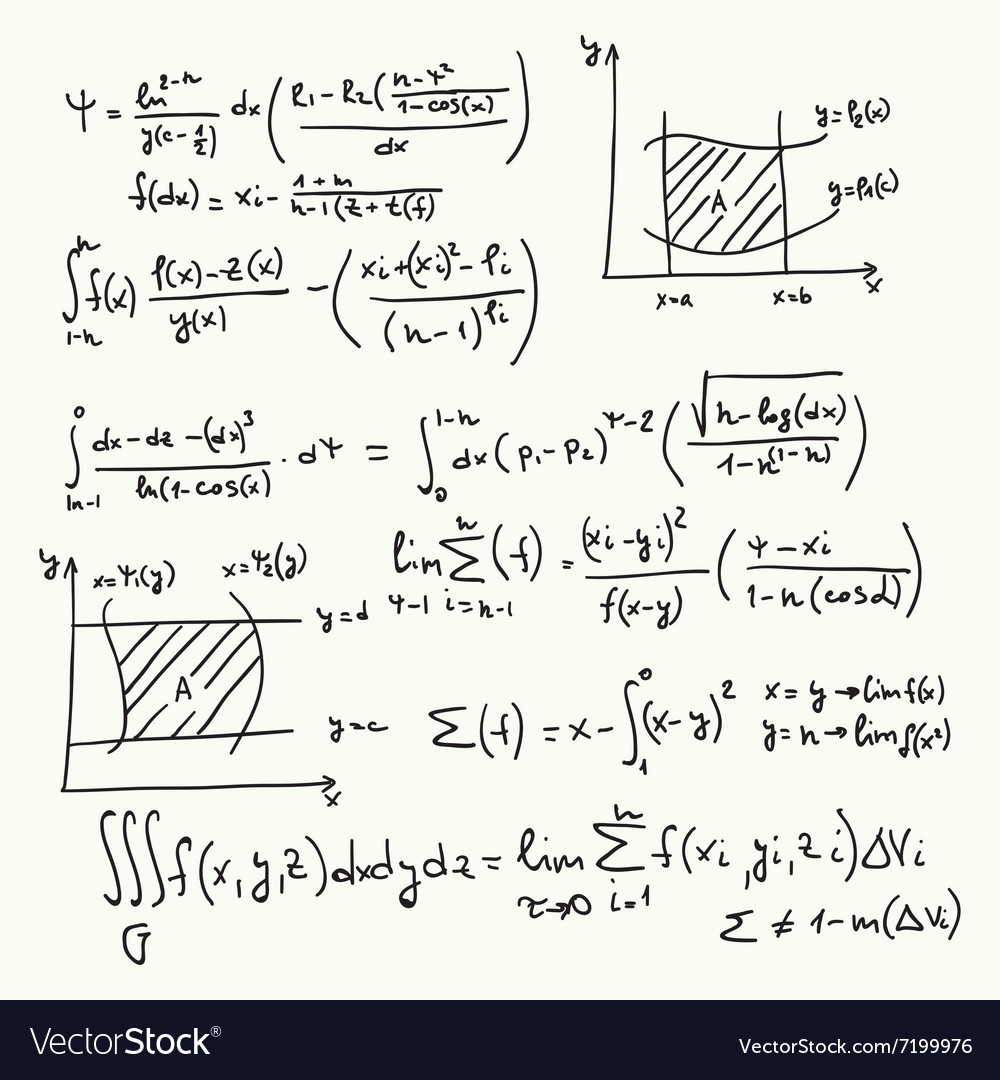 ψ = ln^(2-n) / y(c-1/2) dx ( R1 - R2 ( (n-ψ²) / (1-cos(x) ) / dx )
f(dx) = xi - (1+m) / (n-1(z+t(f))
∫_(1-n)^n f(x) (p(x)-z(x)) / y(x) - ( (xi+(xi)²-pi) / (n-1)^pi )
y
y=P2(x)
y=P1(c)
A
x=a x=b x
∫_(ln-1)^0 (dx-dz-(dx)³) / (ln(1-cos(x)) · dψ = ∫_0^(1-n) dx(p1-p2)^(ψ-2) ( √(n-log(dx)) / (1-n^(1-n)) )
lim_(ψ-1) Σ_(i=n-1)^n (f) = (xi-yi)² / f(x-y) ( (ψ-xi) / (1-n(cosα)) )
y
x=ψ1(y) x=ψ2(y)
y=d
A
y=c
x
Σ(f) = x - ∫_1^0 (x-y)²
x = y → lim f(x)
y = n → lim f(x²)
∭_G f(x,y,z)dxdydz = lim_(τ→0) Σ_(i=1)^n f(xi,yi,zi)ΔVi
Σ ≠ 1-m(ΔVi)
VectorStock®
VectorStock.com/7199976